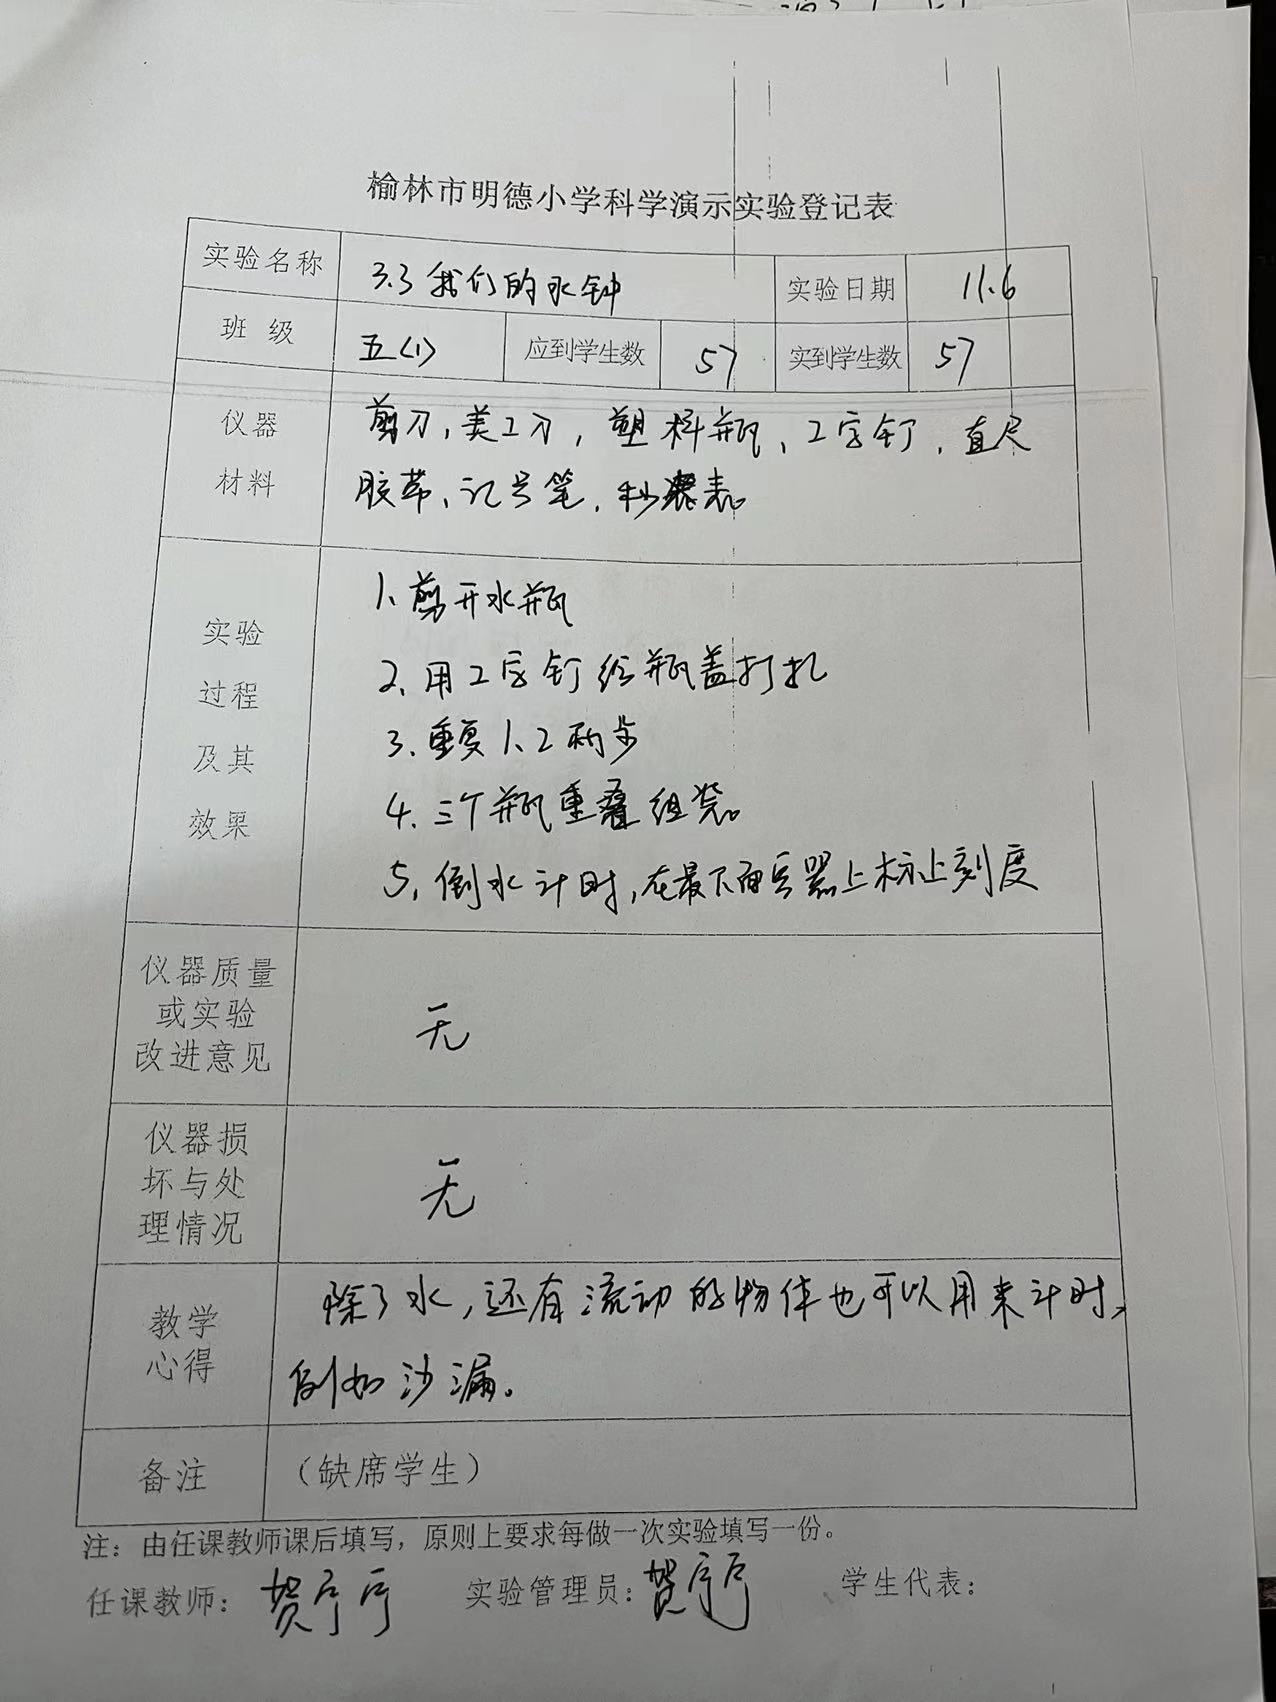 榆林市明德小学科学演示实验登记表
实验名称 3.3 我们的水钟 实验日期 11.6
班 级 五(1) 应到学生数 57 实到学生数 57
仪器 剪刀,美工刀,塑料瓶、工字钉,直尺
材料 胶带、记号笔,秒表。
1、剪开水瓶
实验
2、用工字钉给瓶盖打扎
过程
3、重复1、2两步
及其
4、三个瓶重叠组装。
效果
5,倒水计时,在最下面容器上标上刻度
仪器质量
或实验 无
改进意见
仪器损
坏与处 无
理情况
除了水,还有流动的物体也可以用来计时,
教学
心得 例如沙漏。
备注 (缺席学生)
注:由任课教师课后填写,原则上要求每做一次实验填写一份。
任课教师: 贺 实验管理员: 贺 学生代表: